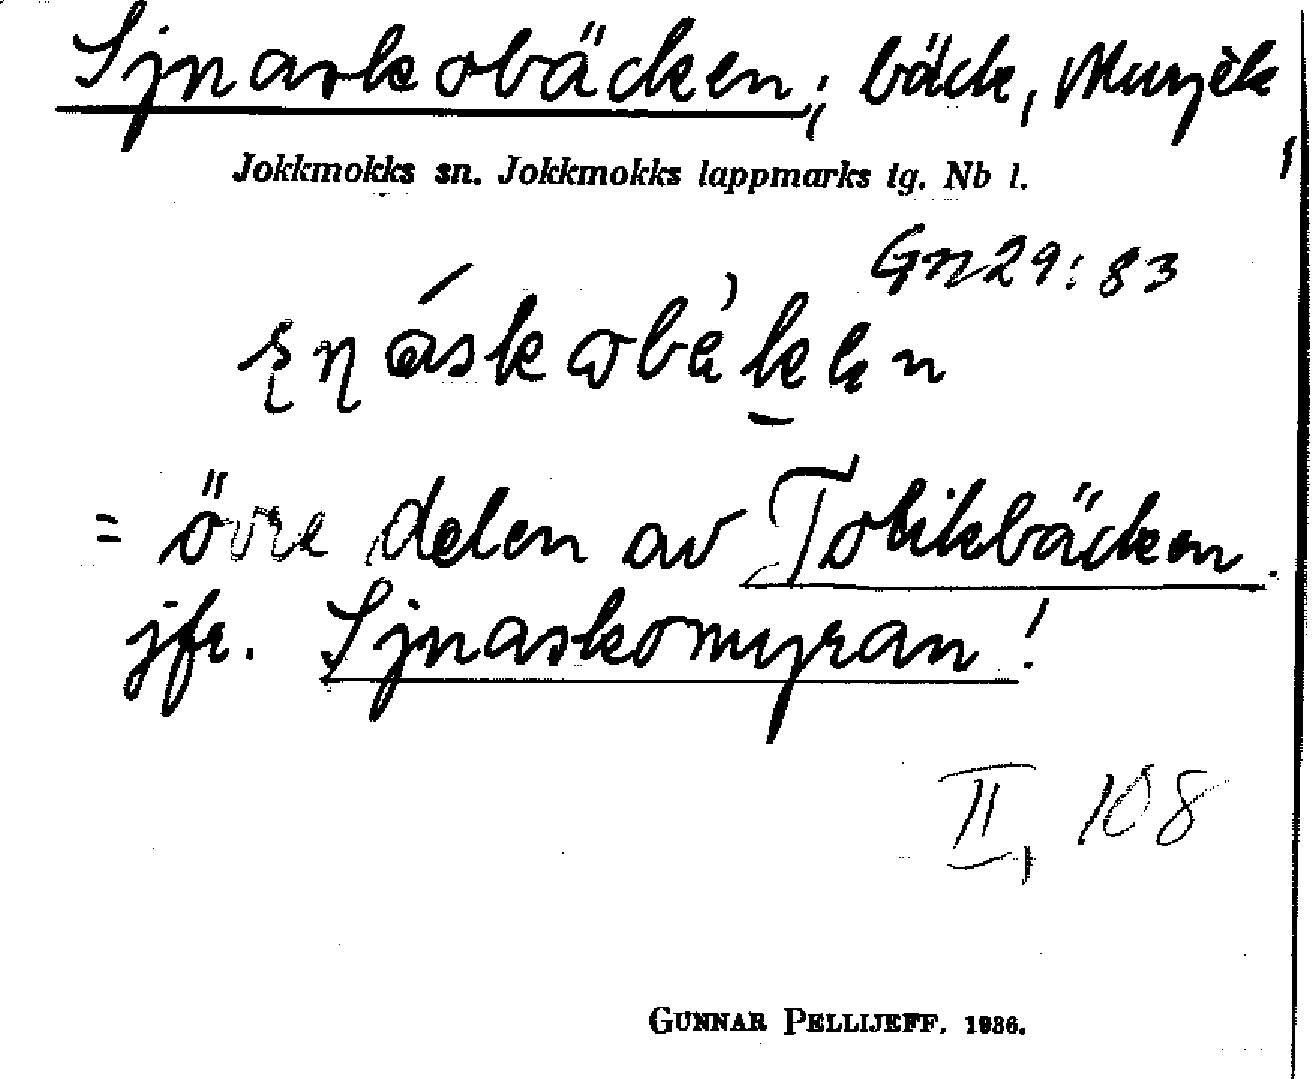 Sjnaskobäcken; bäck, Murjek,
Jokkmokks sn. Jokkmokks lappmarks tg. Nb l.
Gn 29:83
= övre delen av Tobikbäcken.
jfr. Sjnaskomyran!
II, 108
GUNNAR PELLIJEFF. 1936.